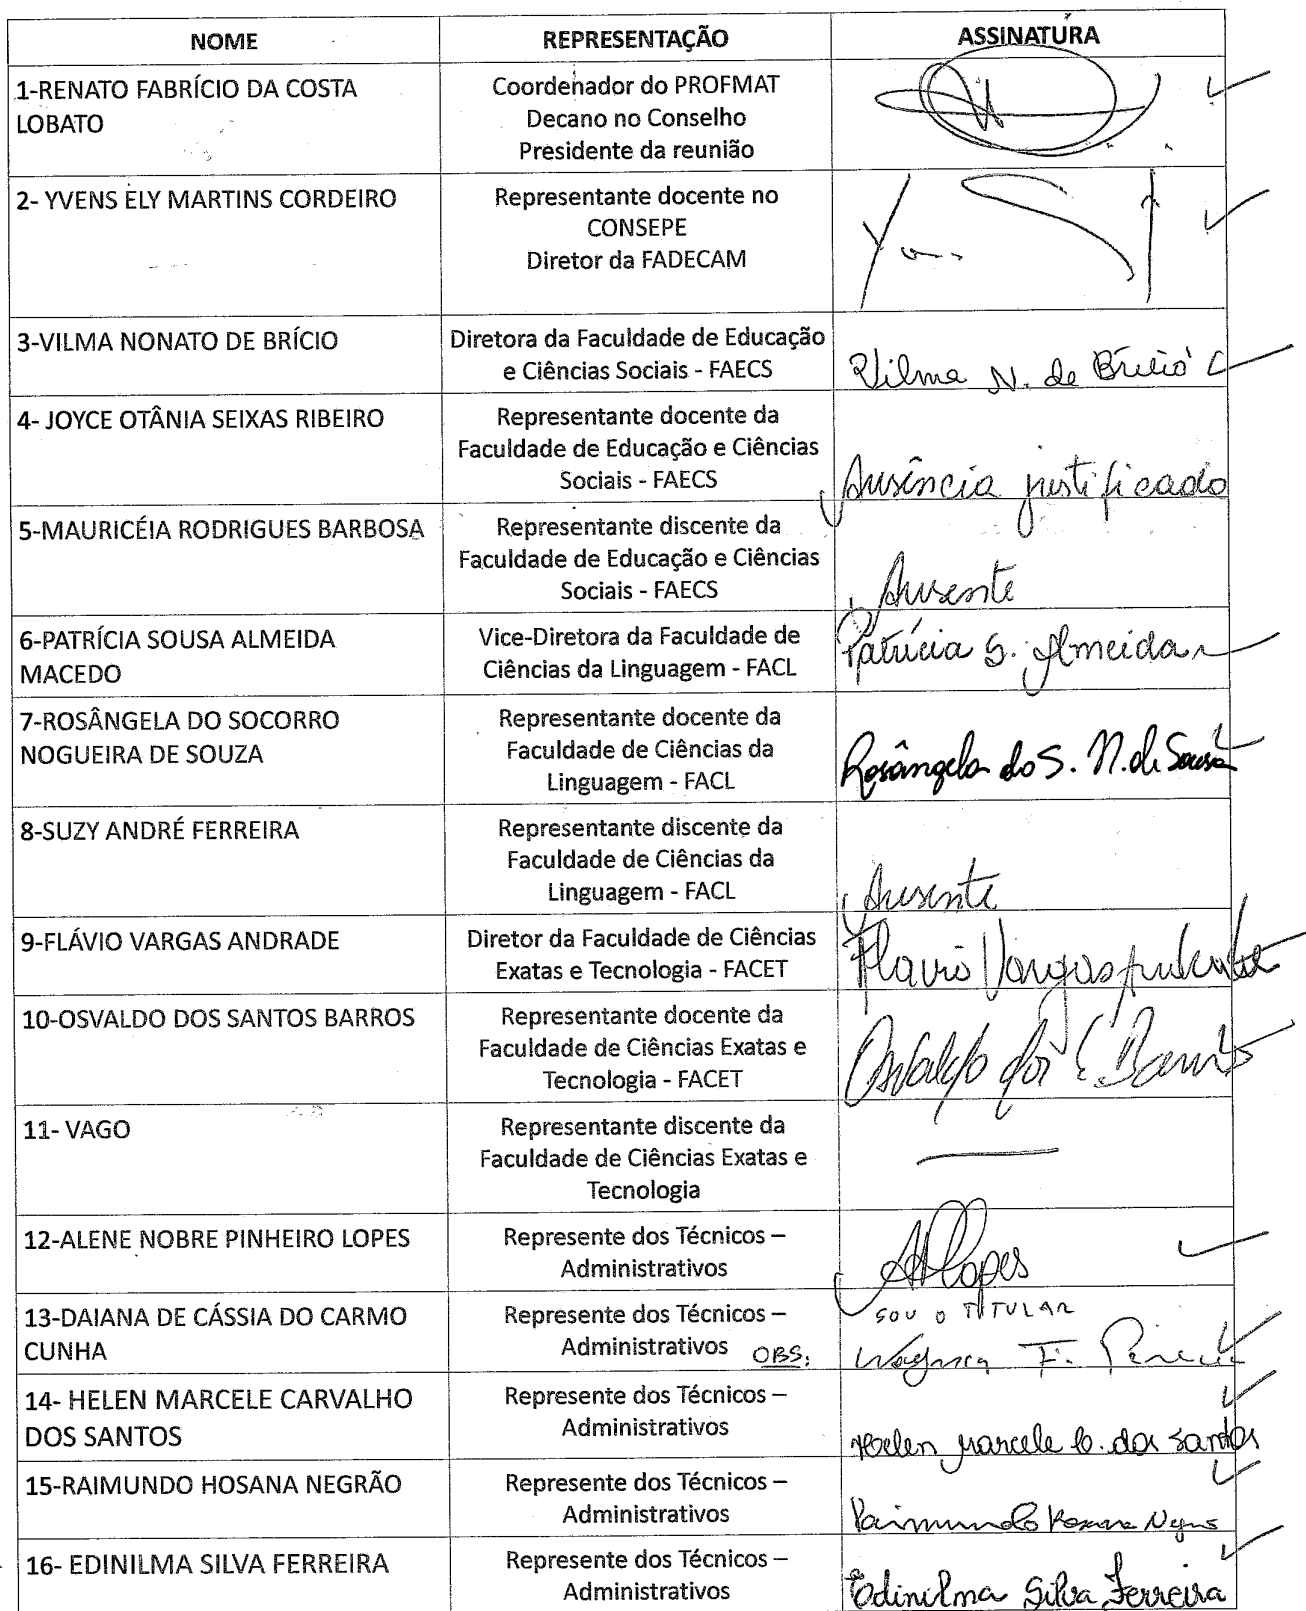 NOME REPRESENTAÇÃO ASSINATURA
1-RENATO FABRÍCIO DA COSTA
LOBATO
Coordenador do PROFMAT
Decano no Conselho
Presidente da reunião
2- YVENS ELY MARTINS CORDEIRO
Representante docente no
CONSEPE
Diretor da FADECAM
3-VILMA NONATO DE BRÍCIO
Diretora da Faculdade de Educação
e Ciências Sociais - FAECS
Vilma N. de Brício
4- JOYCE OTÂNIA SEIXAS RIBEIRO
Representante docente da
Faculdade de Educação e Ciências
Sociais - FAECS
Ausência justificado
5-MAURICÉIA RODRIGUES BARBOSA
Representante discente da
Faculdade de Educação e Ciências
Sociais - FAECS
Ausente
6-PATRÍCIA SOUSA ALMEIDA
MACEDO
Vice-Diretora da Faculdade de
Ciências da Linguagem - FACL
Patrícia S. Almeida
7-ROSÂNGELA DO SOCORRO
NOGUEIRA DE SOUZA
Representante docente da
Faculdade de Ciências da
Linguagem - FACL
Rosângela do S. N. de Sousa
8-SUZY ANDRÉ FERREIRA
Representante discente da
Faculdade de Ciências da
Linguagem - FACL
Ausente
9-FLÁVIO VARGAS ANDRADE
Diretor da Faculdade de Ciências
Exatas e Tecnologia - FACET
Flavio Vargas Andrade
10-OSVALDO DOS SANTOS BARROS
Representante docente da
Faculdade de Ciências Exatas e
Tecnologia - FACET
Osvaldo dos S. Barros
11- VAGO
Representante discente da
Faculdade de Ciências Exatas e
Tecnologia
12-ALENE NOBRE PINHEIRO LOPES
Represente dos Técnicos –
Administrativos
Lopes
13-DAIANA DE CÁSSIA DO CARMO
CUNHA
Represente dos Técnicos –
Administrativos OBS:
SOU O TITULAR
Wagner F. Pereira
14- HELEN MARCELE CARVALHO
DOS SANTOS
Represente dos Técnicos –
Administrativos
Helen Marcele C. dos Santos
15-RAIMUNDO HOSANA NEGRÃO
Represente dos Técnicos –
Administrativos
Raimundo Hosana Negrão
16- EDINILMA SILVA FERREIRA
Represente dos Técnicos –
Administrativos
Edinilma Silva Ferreira